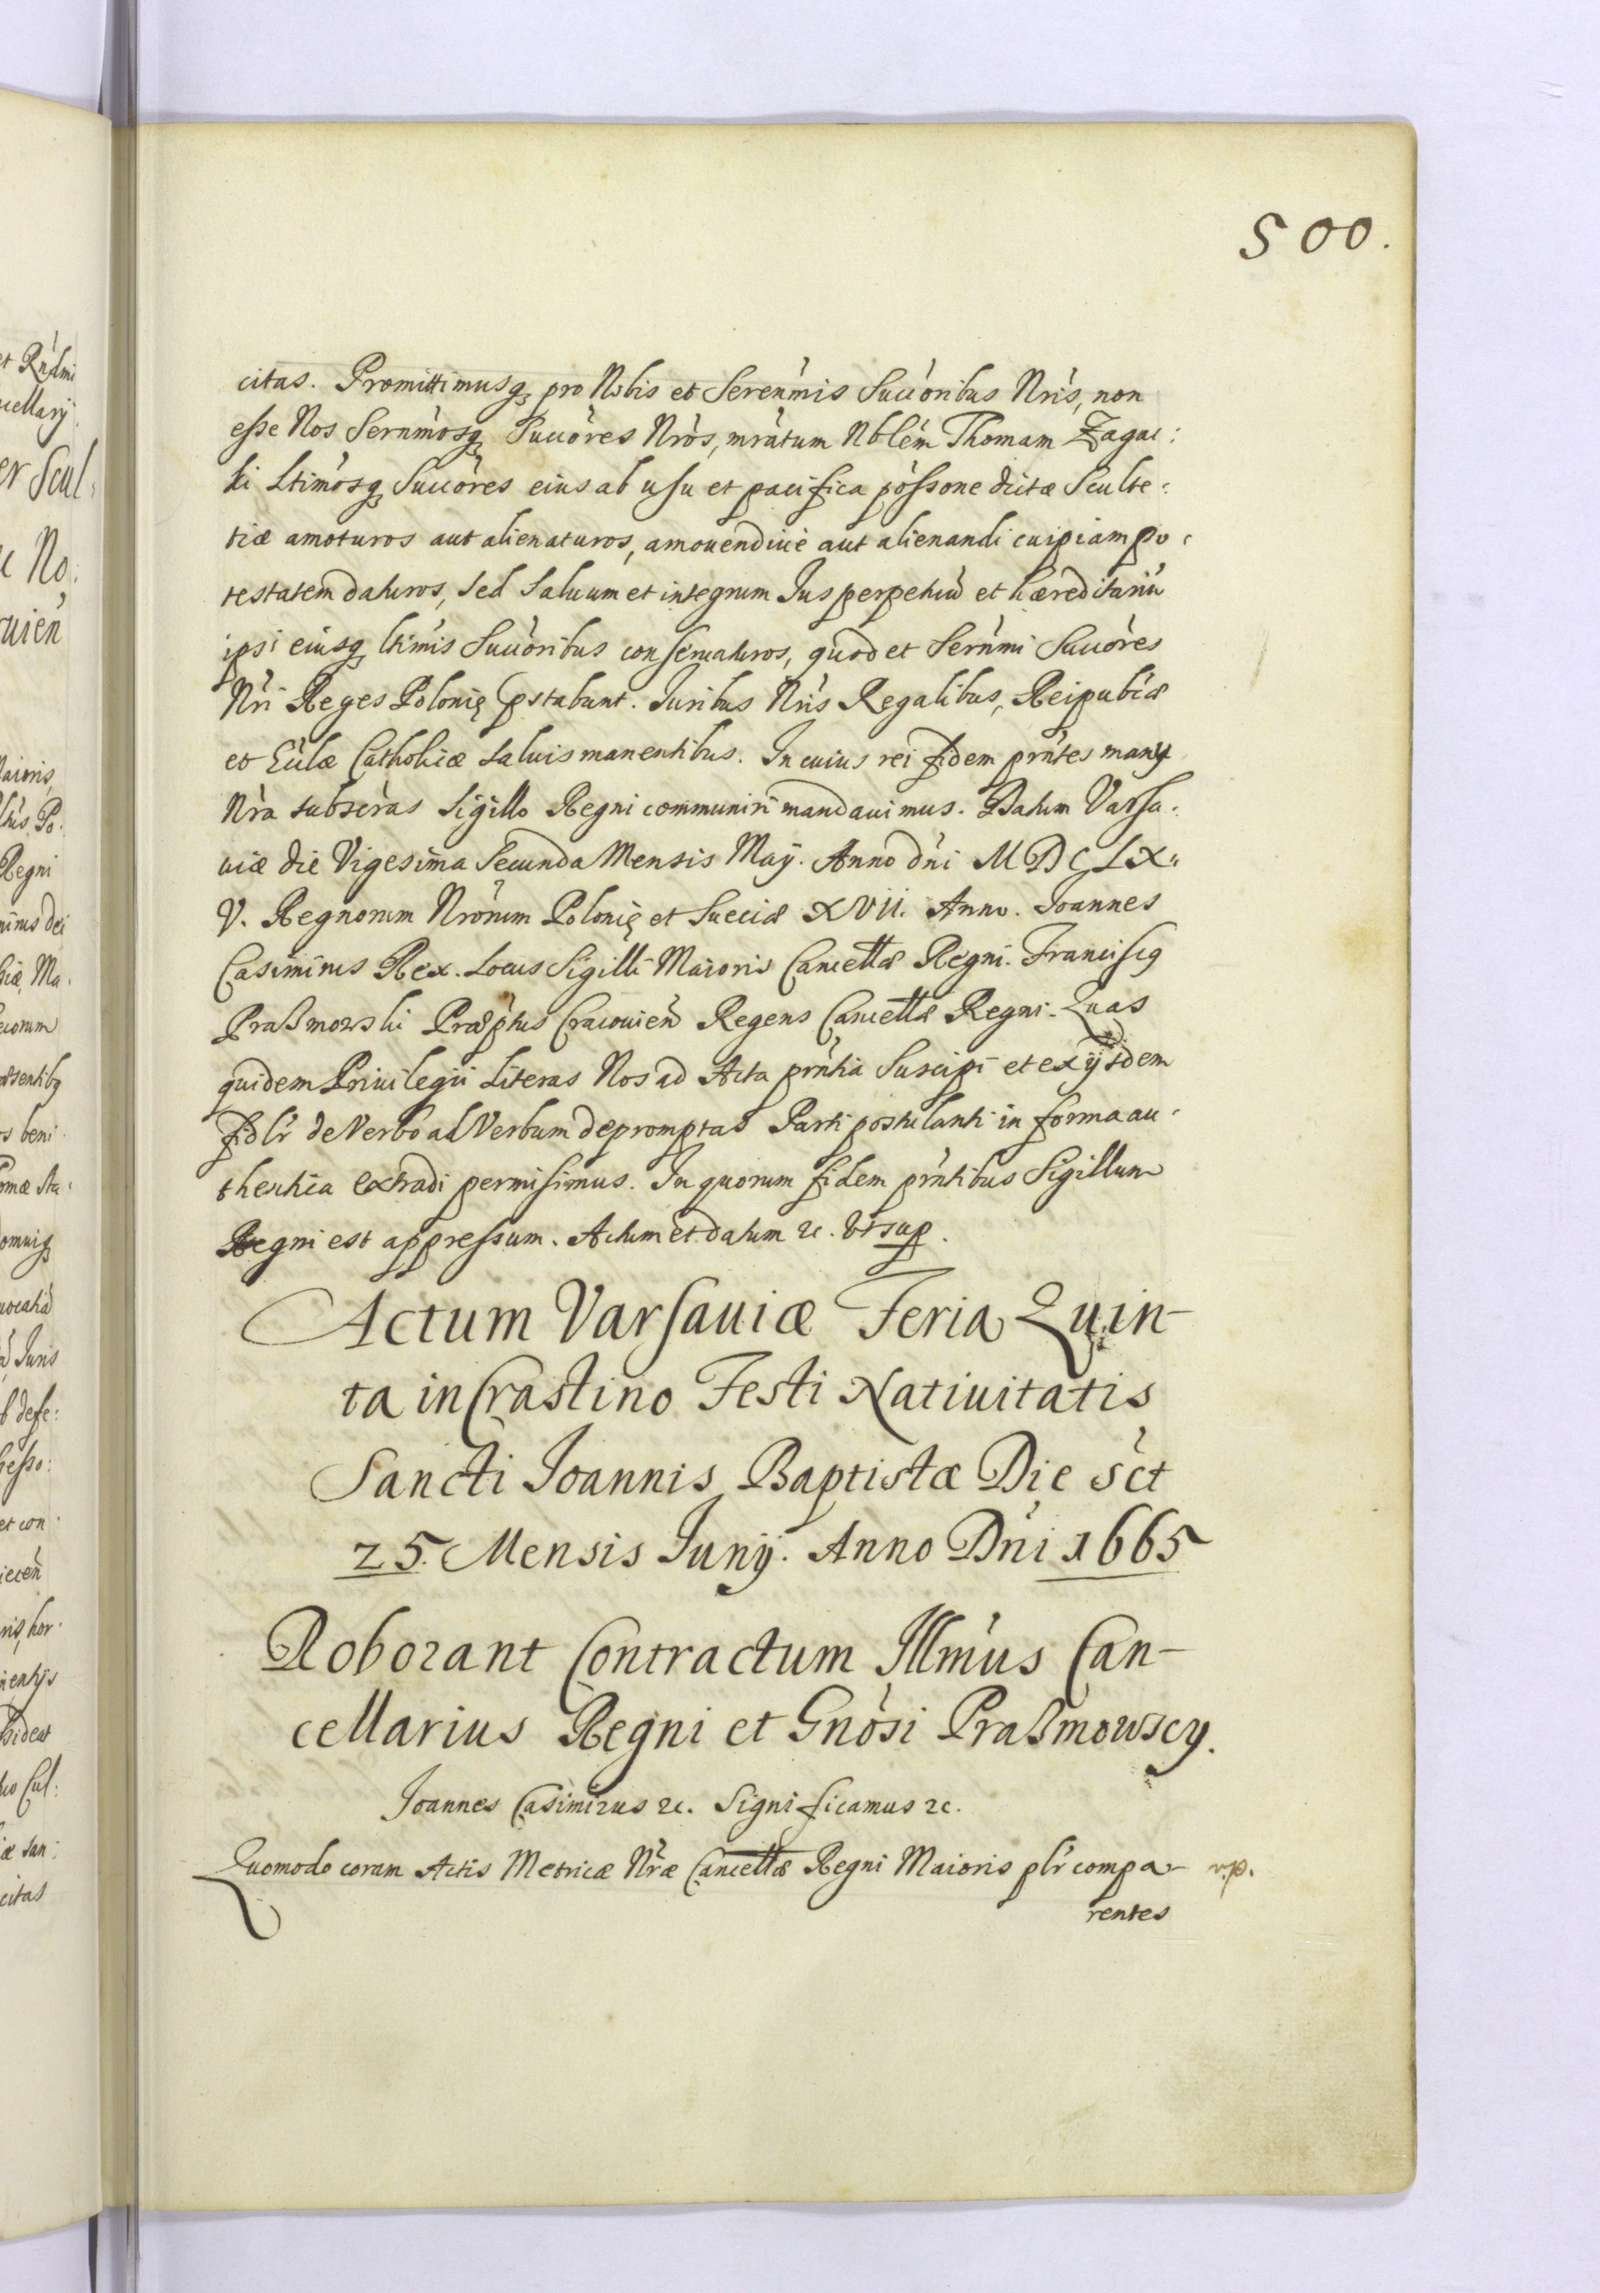 500.
citas. Promittimusq, pro Nobis et Serenmis Succoribus Nris, non
esse Nos Sernmosq Succores Nros, mratum Nblem Thomam Zagac:
ki Ltimosq Succores eius ab usu et pacifica possone dictæ Sculte:
tiæ amoturos aut alienaturos, amouendiue aut alienandi cuipiam po:
testatem daturos, sed saluum et integrum Jus perpetuũ et hæreditariũ
ipsi eiusq ltimis Succoribus conseruaturos, quod et Sernmi Succores
Nri Reges Polonię pstabunt. Juribus Nris Regalibus, Reipubcæ
et Eclæ Catholicæ saluis manentibus. In cuius rei fidem prntes manu
Nra subscras Sigillo Regni communiri mandauimus. Datum Varsa:
uiæ die Vigesima Secunda Mensis Maÿ. Anno dni MDCLX"
V. Regnorum Nrorum Polonię et Sueciæ XVII. Anno. Joannes
Casimirus Rex. Locus Sigilli Maioris Cancellæ Regni. Franciscq
Praßmowski Præptus Cracouien Regens Cancellæ Regni. Quas
quidem Priuilegii Literas Nos ad Acta prntia suscipi et ex ÿsdem
fidlr de Verbo ad Verbum depromptas Parti postulanti in forma au:
thentica extradi permisimus. In quorum fidem prntibus Sigillum
Regni est appressum. Actum et datum &c. vt sup.
Actum Varsauiæ Feria Quin-
ta in Crastino Festi Natiuitatis
Sancti Joannis Baptistæ Die sct
25. Mensis Junÿ. Anno Dni 1665
Roborant Contractum Illmus Can-
cellarius Regni et Gnosi Praßmowscy.
Joannes Casimirus &c. Significamus &c.
Quomodo coram Actis Metricæ Nræ Cancellæ Regni Maioris plr compa-
rentes